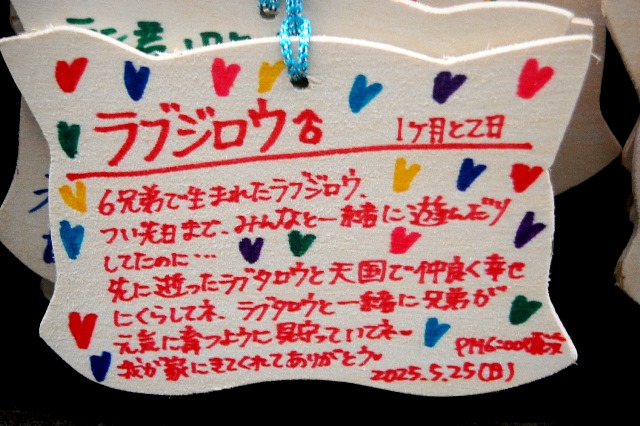 ラブジロウ♂ 1ヶ月と2日
6兄弟で生まれたラブジロウ、
つい先日まで、みんなと一緒に遊んだり
してたのに…
先に逝ったラブタロウと天国で仲良く幸せ
にくらしてネ、ラブタロウと一緒に兄弟が
元気に育つように見守っていてネ
我が家にきてくれてありがとう
PM6:00頃没
2025.5.25(日)